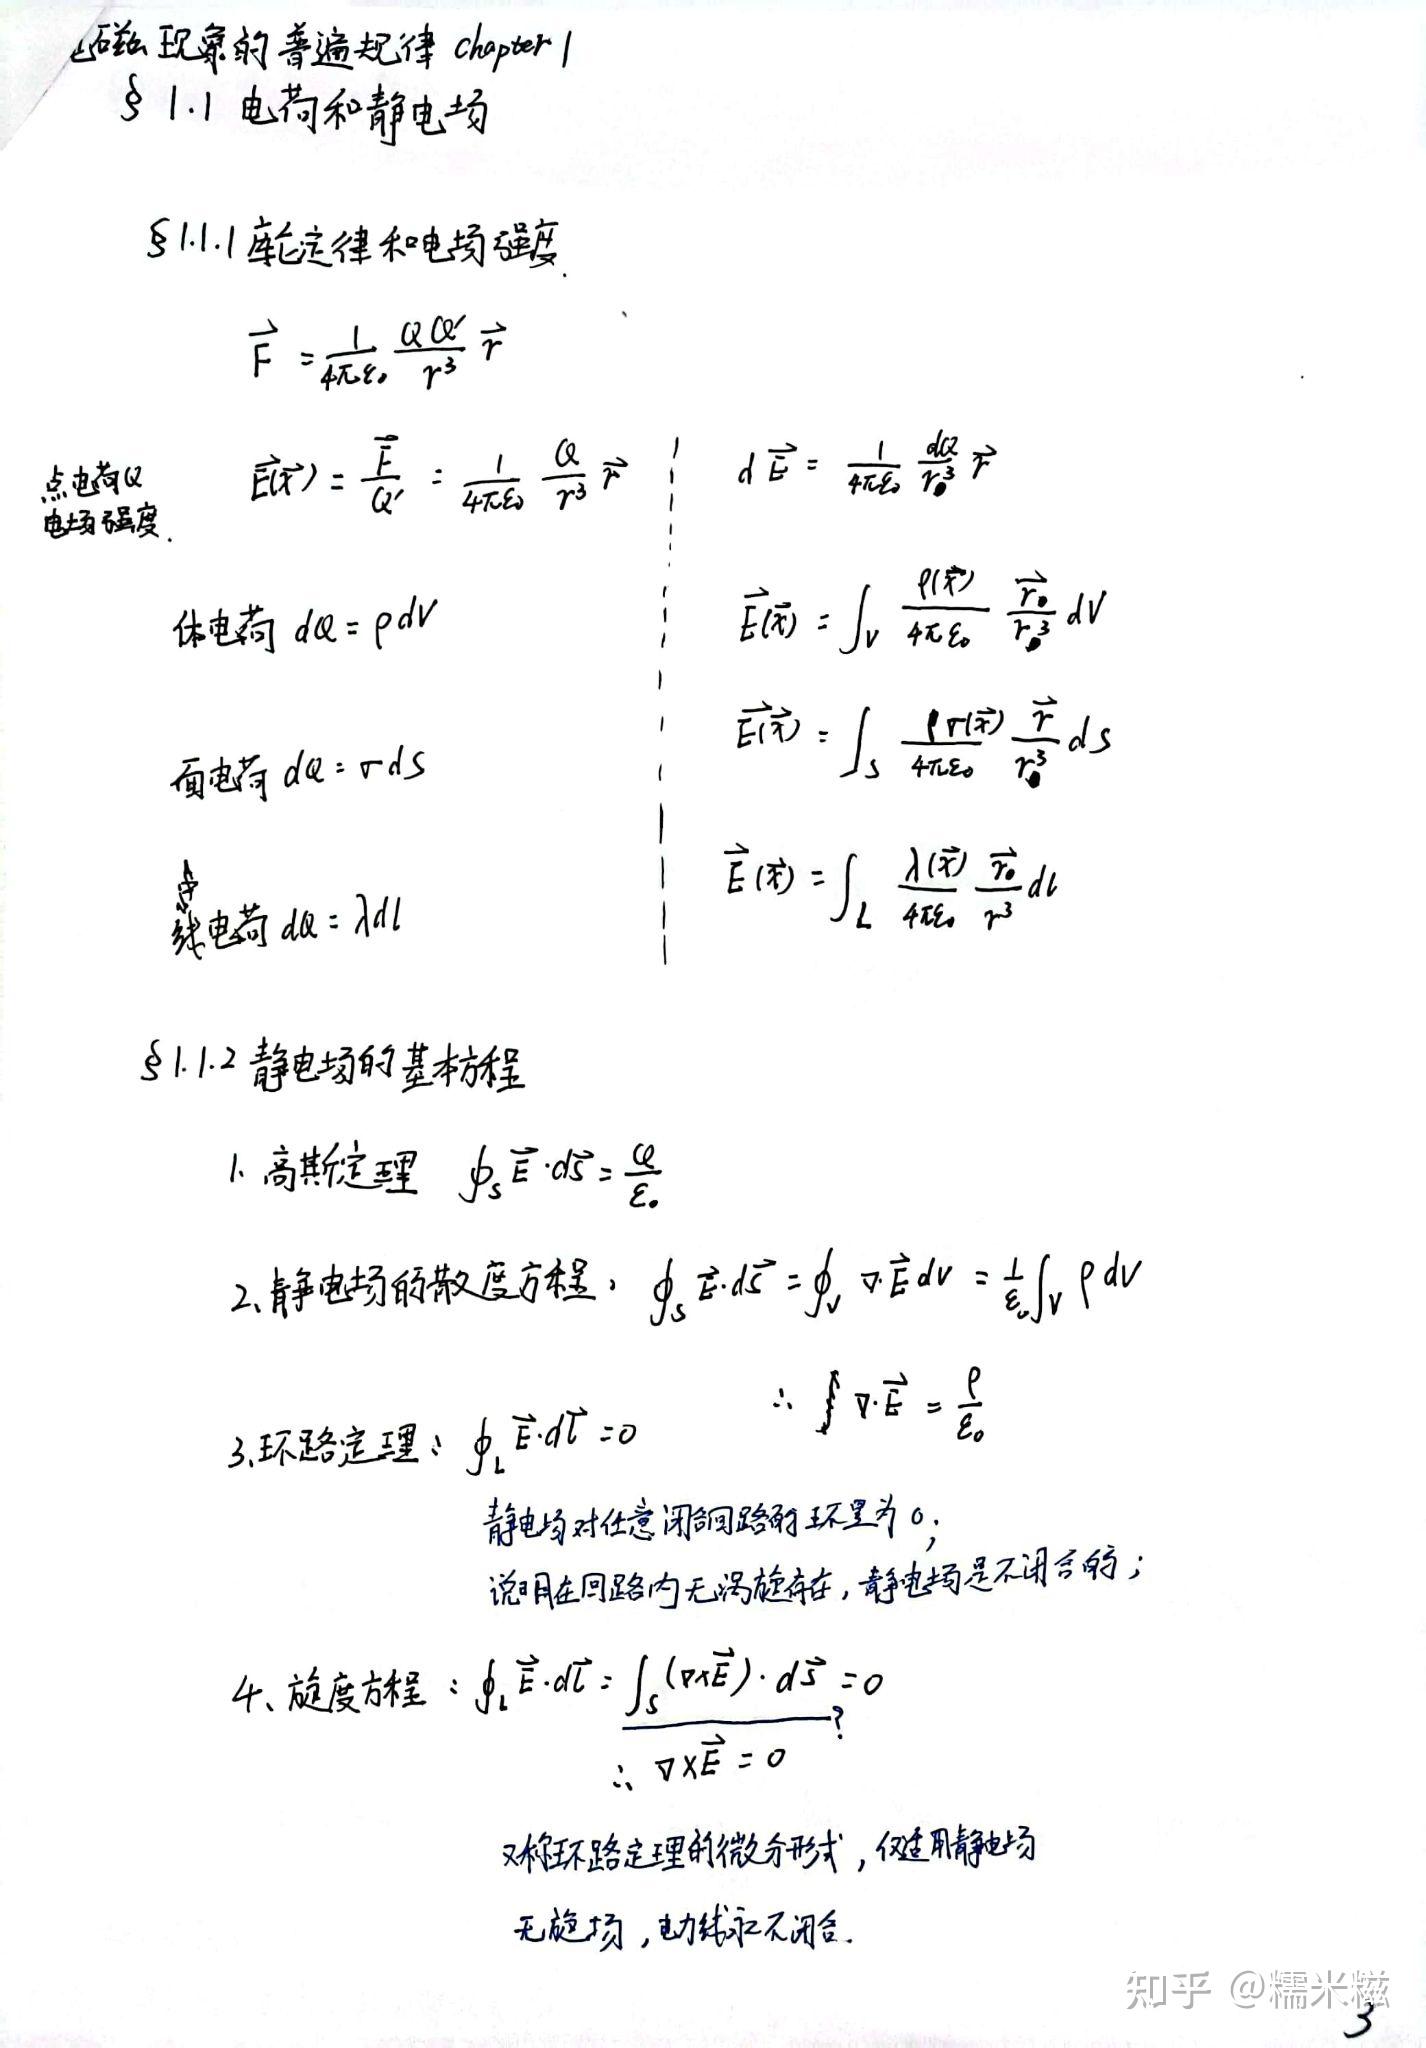 电磁现象的普遍规律 chapter 1
§ 1.1 电荷和静电场
§1.1.1 库仑定律和电场强度.
$\vec{F} = \frac{1}{4\pi\varepsilon_0} \frac{QQ'}{r^3} \vec{r}$
点电荷Q
电场强度.
$\vec{E}(\vec{x}) = \frac{\vec{F}}{Q'} = \frac{1}{4\pi\varepsilon_0} \frac{Q}{r^3} \vec{r}$
$d\vec{E} = \frac{1}{4\pi\varepsilon_0} \frac{dQ}{r^3} \vec{r}$
体电荷 $dQ = \rho dV$
$\vec{E}(\vec{x}) = \int_V \frac{\rho(\vec{x})}{4\pi\varepsilon_0} \frac{\vec{r_0}}{r^3} dV$
面电荷 $dQ = \sigma ds$
$\vec{E}(\vec{x}) = \int_S \frac{\sigma(\vec{x})}{4\pi\varepsilon_0} \frac{\vec{r}}{r^3} ds$
线电荷 $dQ = \lambda dl$
$\vec{E}(\vec{x}) = \int_L \frac{\lambda(\vec{x})}{4\pi\varepsilon_0} \frac{\vec{r_0}}{r^3} dl$
§1.1.2 静电场的基本方程
1. 高斯定理 $\oint_S \vec{E} \cdot d\vec{s} = \frac{Q}{\varepsilon_0}$
2、静电场的散度方程: $\oint_S \vec{E} \cdot d\vec{s} = \oint_V \nabla \cdot \vec{E} dV = \frac{1}{\varepsilon_0} \int_V \rho dV$
∴ $\nabla \cdot \vec{E} = \frac{\rho}{\varepsilon_0}$
3、环路定理: $\oint_L \vec{E} \cdot d\vec{l} = 0$
静电场对任意闭合回路的环量为0;
说明在回路内无涡旋存在, 静电场是不闭合的;
4、旋度方程: $\oint_L \vec{E} \cdot d\vec{l} = \int_S (\nabla \times \vec{E}) \cdot d\vec{s} = 0$
?
∴ $\nabla \times \vec{E} = 0$
又称环路定理的微分形式, 仅适用静电场
无旋场, 电力线永不闭合.
知乎 @糯米糍
3